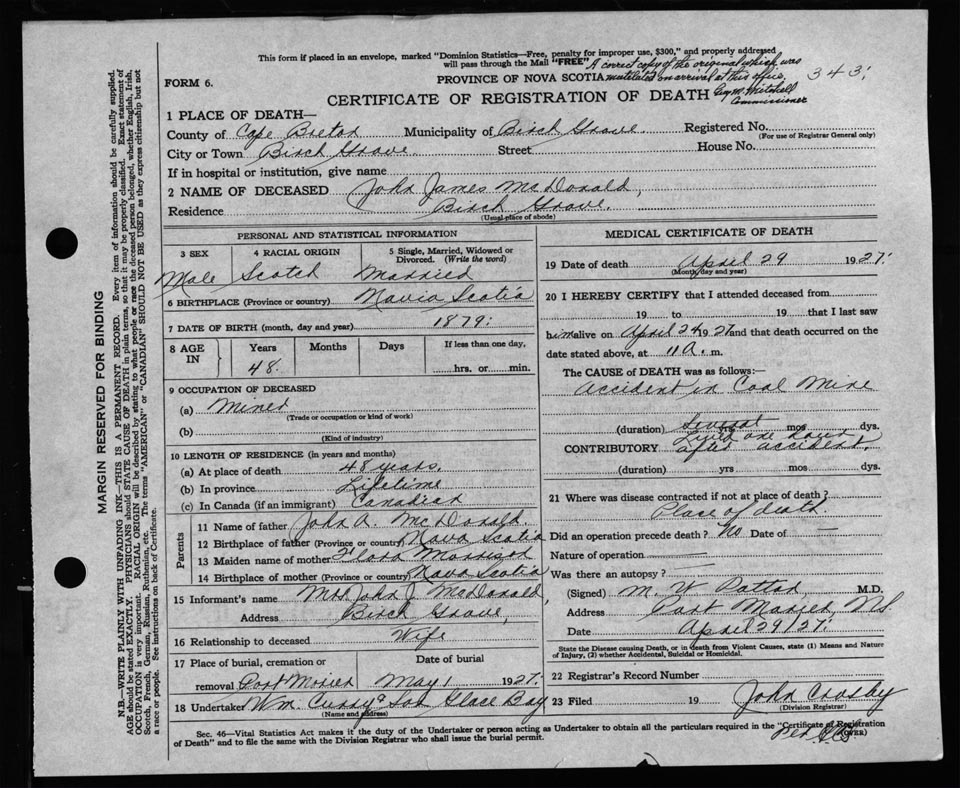 This form if placed in an envelope, marked "Dominion Statistics—Free, penalty for improper use, $300," and properly addressed
will pass through the Mail "FREE" A correct copy of the original which was
FORM 6. PROVINCE OF NOVA SCOTIA mutilated on arrival at this office. 343
CERTIFICATE OF REGISTRATION OF DEATH Mitchell
Commissioner
1 PLACE OF DEATH—
County of Cape Breton Municipality of Birch Grove. Registered No.
(For use of Registrar General only)
City or Town Birch Grove. Street House No.
If in hospital or institution, give name
2 NAME OF DECEASED John James McDonald,
Residence Birch Grove.
(Usual place of abode)
PERSONAL AND STATISTICAL INFORMATION
3 SEX 4 RACIAL ORIGIN 5 Single, Married, Widowed or Divorced. (Write the word)
Male Scotch Married
6 BIRTHPLACE (Province or country) Novia Scotia
7 DATE OF BIRTH (month, day and year) 1879.
8 AGE IN Years Months Days If less than one day,
48. hrs. or min.
9 OCCUPATION OF DECEASED
(a) Miner
(Trade or occupation or kind of work)
(b)
(Kind of industry)
10 LENGTH OF RESIDENCE (in years and months)
(a) At place of death 48 years.
(b) In province Lifetime
(c) In Canada (if an immigrant) Canadian
Parents
11 Name of father John A. McDonald.
12 Birthplace of father (Province or country) Nova Scotia
13 Maiden name of mother Flora Morrison
14 Birthplace of mother (Province or country) Nova Scotia
15 Informant's name Mrs John J. McDonald,
Address Birch Grove,
16 Relationship to deceased Wife
17 Place of burial, cremation or Date of burial
removal Port Morien May 1 1927.
18 Undertaker Wm. Curry & Son Glace Bay
(Name and address)
MEDICAL CERTIFICATE OF DEATH
19 Date of death April 29 1927.
(Month, day and year)
20 I HEREBY CERTIFY that I attended deceased from
19 to 19 that I last saw
him alive on April 24 1927 and that death occurred on
date stated above, at 11 A. m.
The CAUSE OF DEATH was as follows:—
Accident in Coal Mine
(duration) Several yrs mos dys.
CONTRIBUTORY Lived one hour
after accident,
(duration) yrs mos dys.
21 Where was disease contracted if not at place of death?
Place of death.
Did an operation precede death? No Date of
Nature of operation
Was there an autopsy?
(Signed) M. W Patton, M.D.
Address Port Morien, N.S.
Date April 29/27.
State the Disease causing Death, or in death from Violent Causes, state (1) Means and Nature
of Injury, (2) whether Accidental, Suicidal or Homicidal.
22 Registrar's Record Number
23 Filed 19 John Crosby
(Division Registrar)
Sec. 46—Vital Statistics Act makes it the duty of the Undertaker or person acting as Undertaker to obtain all the particulars required in the "Certificate of Registration
of Death" and to file the same with the Division Registrar who shall issue the burial permit. (OVER)
MARGIN RESERVED FOR BINDING
N.B.—WRITE PLAINLY WITH UNFADING INK—THIS IS A PERMANENT RECORD. Every item of information should be carefully supplied.
AGE should be stated EXACTLY. PHYSICIANS should STATE CAUSE OF DEATH in plain terms, so that it may be properly classified. Exact statement of
OCCUPATION is very important. RACIAL ORIGIN will be described by stating to what people or race the deceased person belonged, whether English, Irish,
Scotch, French, German, Russian, Ruthenian, etc. The terms "AMERICAN" or "CANADIAN" SHOULD NOT BE USED as they express citizenship but not
a race or people. See instructions on back of Certificate.